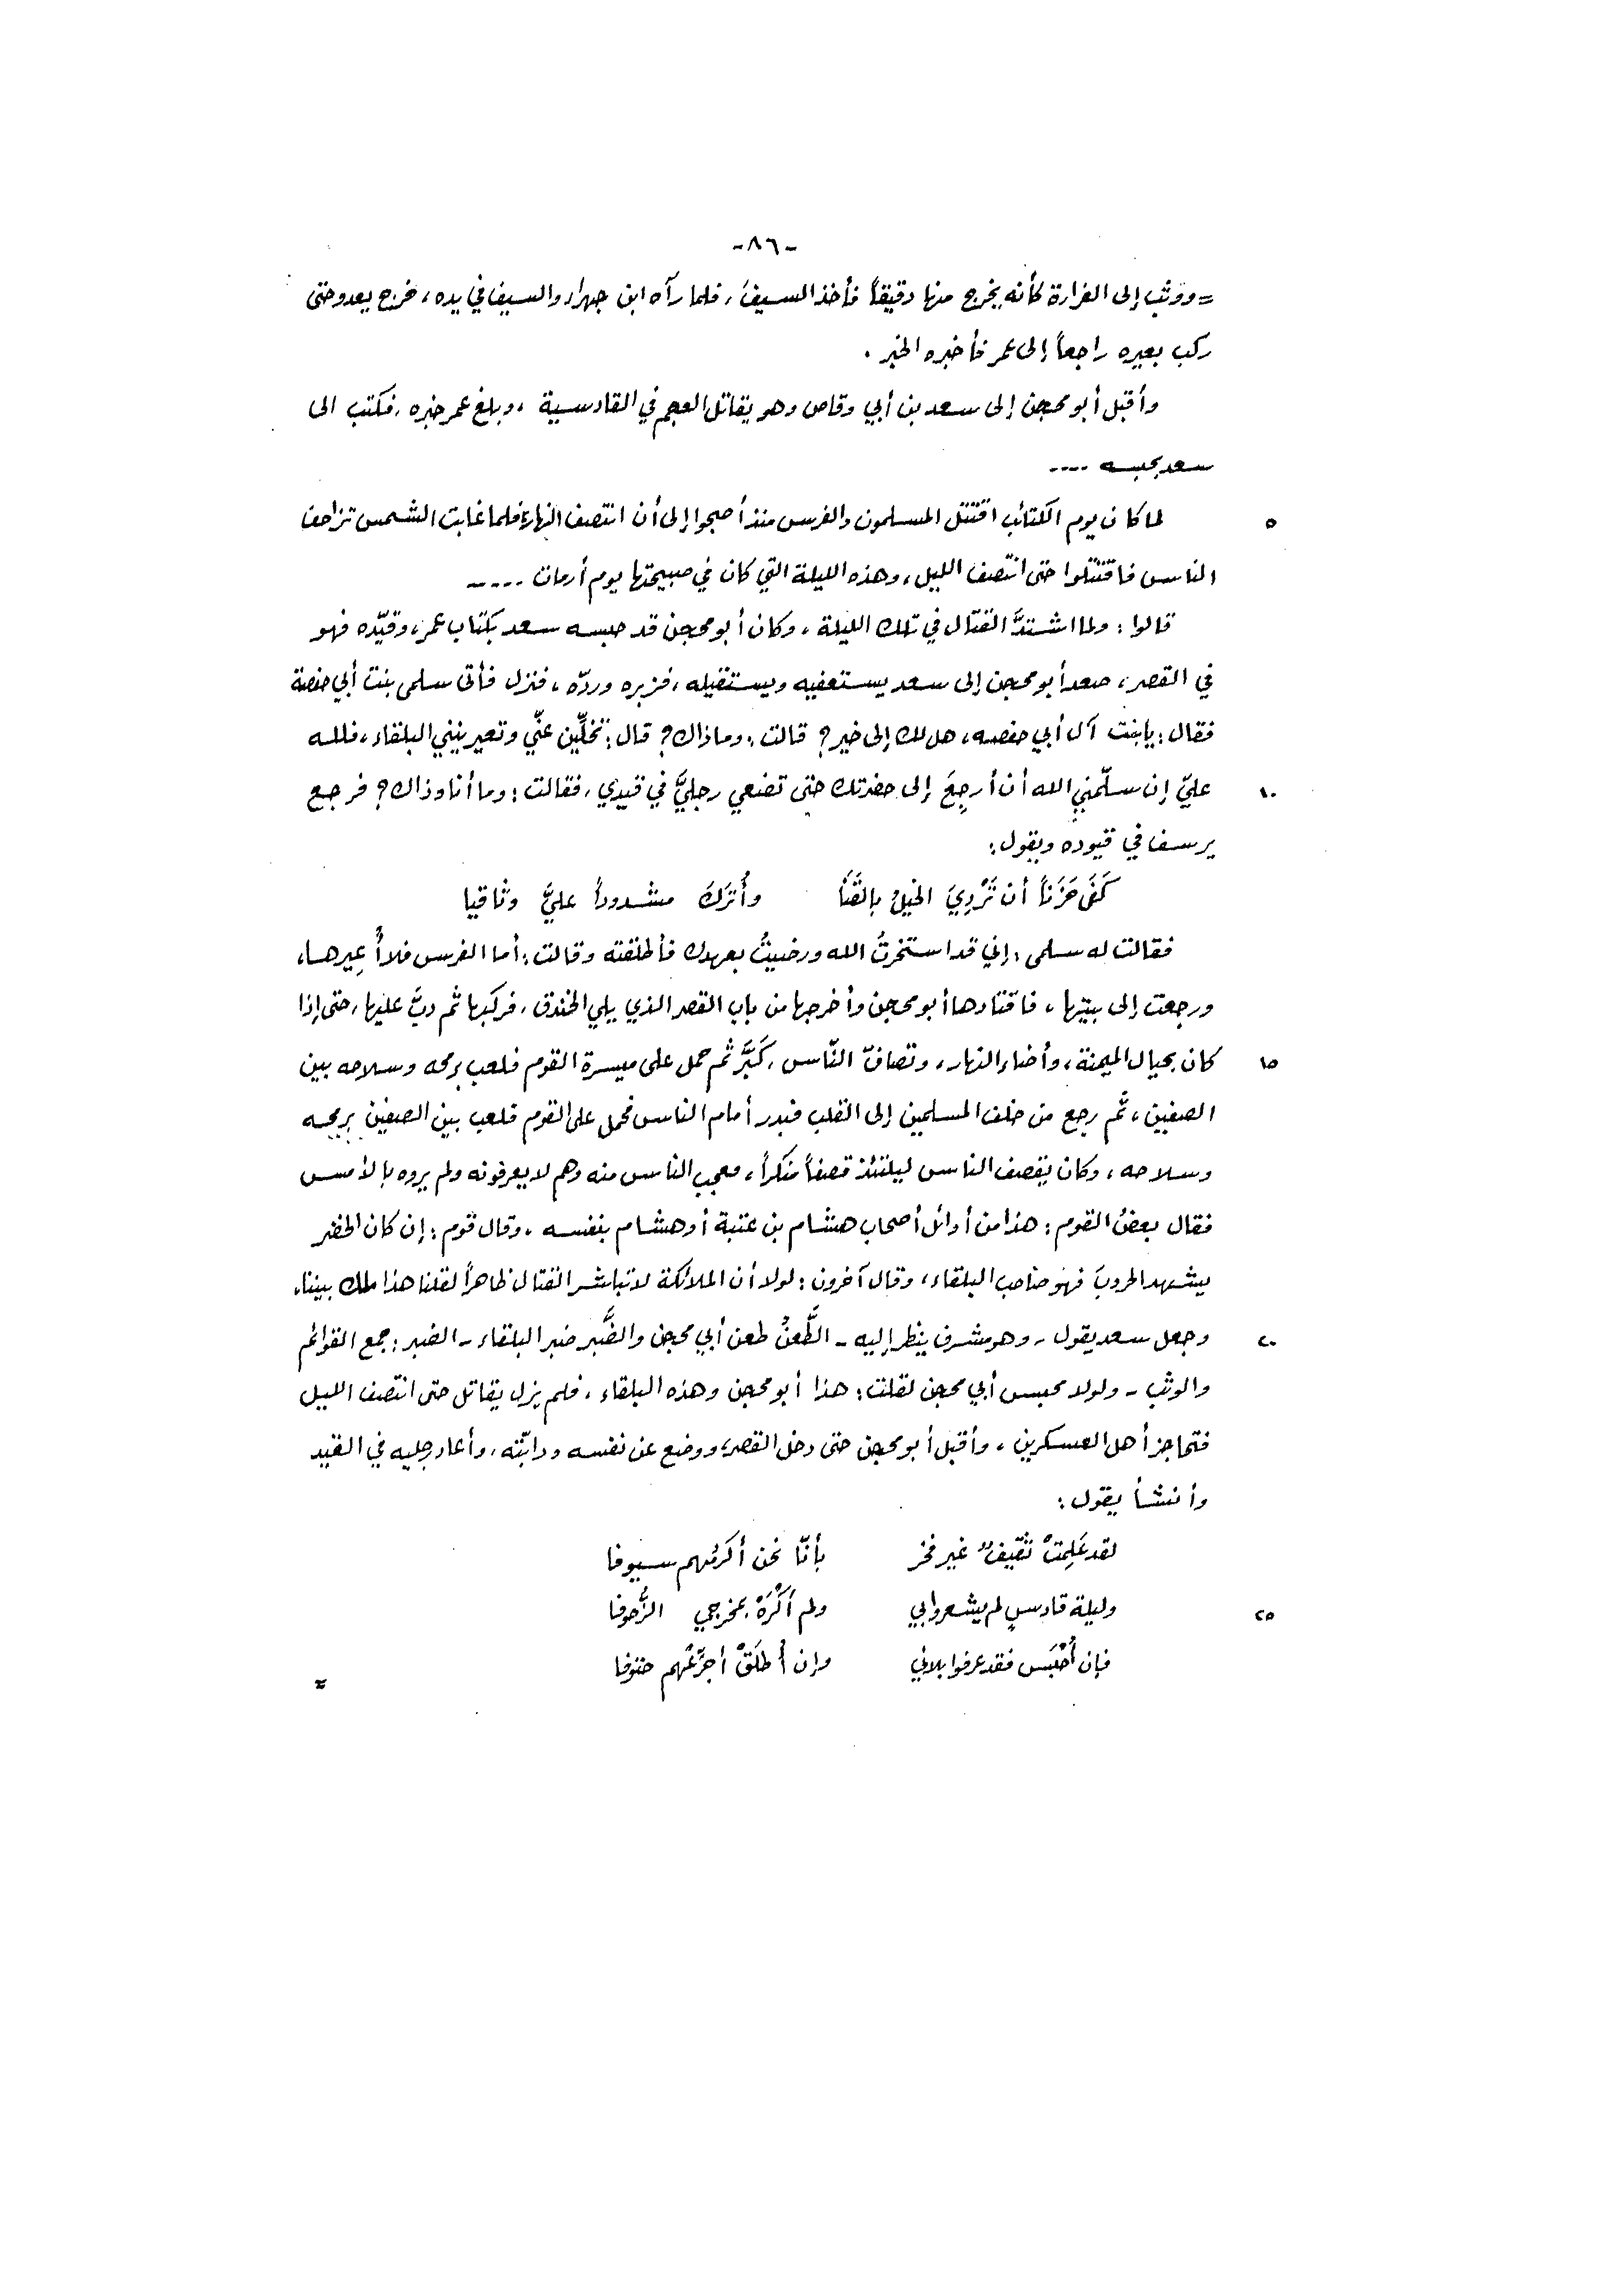 -٨٦-
= ووثب إلى الغرارة كأنه يخرج منها دقيقاً فأخذ السيفَ، فلما رآه ابن جهراء والسيف في يده، خرج يعدو حتى
ركب بعيره راجعاً إلى عمر فأخبره الخبر.
وأقبل أبو محجن إلى سعد بن أبي وقاص وهو يقاتل العجم في القادسية، وبلغ عمر خبره، فكتب الى
سعد بحبسه ----
٥ لما كان يوم الكتائب اقتتل المسلمون والفرس منذ أصبحوا إلى أن انتصف النهار، فلما غابت الشمس تزاحف
الناس فاقتتلوا حتى انتصف الليل، وهذه الليلة التي كان في صبيحتها يوم أرماث -----
قالوا: ولما اشتدَّ القتال في تلك الليلة، وكان أبو محجن قد حبسه سعد بكتاب عمر، وقيّده فهو
في القصر، صعد أبو محجن إلى سعد يستعفيه ويستقيله، فزبره وردّه، فنزل فأتى سلمى بنت أبي حفصة
فقال: يابنت آل أبي حفصه، هل لك إلى خير؟ قالت: وماذاك؟ قال: تخلّين عنّي وتعيرينني البلقاء، فلله
١٠ عليّ إن سلّمني الله أن أرجِعَ إلى حضرتك حتى تضعي رجليَّ في قيدي، فقالت: وما أنا وذاك؟ فرجع
يرسف في قيوده ويقول:
كَفَى حَزَناً أن تَرْدِيَ الخيلُ بالقَنَا وأُترَكَ مشدوداً عليَّ وثاقيا
فقالت له سلمى: إني قد استخرتُ الله ورضيتُ بعهدك فأطلقته وقالت: أما الفرس فلا أُعِيرها،
ورجعت إلى بيتها، فاقتادها أبو محجن وأخرجها من باب القصر الذي يلي الخندق، فركبها ثم دبَّ عليها، حتى إذا
١٥ كان بحيال الميمنة، وأضاء النهار، وتصافّ النّاس، كَبَّر ثم حمل على ميسرة القوم فلعب برمحه وسلاحه بين
الصفين، ثم رجع من خلف المسلمين إلى القلب فبدر أمام الناس فحمل على القوم فلعب بين الصفين برمحه
وسلاحه، وكان يقصف الناس ليلتئذ قصفاً منكراً، فعجب الناس منه وهم لا يعرفونه ولم يروه بالأمس
فقال بعضُ القوم: هذا من أوائل أصحاب هشام بن عتبة أو هشام بنفسه، وقال قوم: إن كان الخضر
يشهد الحروبَ فهو صاحب البلقاء، وقال آخرون: لولا أن الملائكة لا تباشر القتال ظاهراً لقلنا هذا ملك بيننا،
٢٠ وجعل سعد يقول - وهو مشرف ينظر إليه - الطَّعنُ طعن أبي محجن والضَّبر ضبر البلقاء - الضبر: جمع القوائم
والوثب - ولولا محبس أبي محجن لقلت: هذا أبو محجن وهذه البلقاء، فلم يزل يقاتل حتى انتصف الليل
فتحاجز أهل العسكرين، وأقبل أبو محجن حتى دخل القصر، ووضع عن نفسه ودابّته، وأعاد رجليه في القيد
وأنشأ يقول:
لقد عَلِمتْ ثقيفٌ غير فخر بأنّا نحن أكرمُهم سيوفا
٢٥ وليلة قادسٍ لم يشعروا بي ولم أُكْرَهْ بمخرجي الزُّحوفا
فإن أُحْبَس فقد عرفوا بلائي وإن أُطلَقْ أجرِّعْهم حتوفا
=